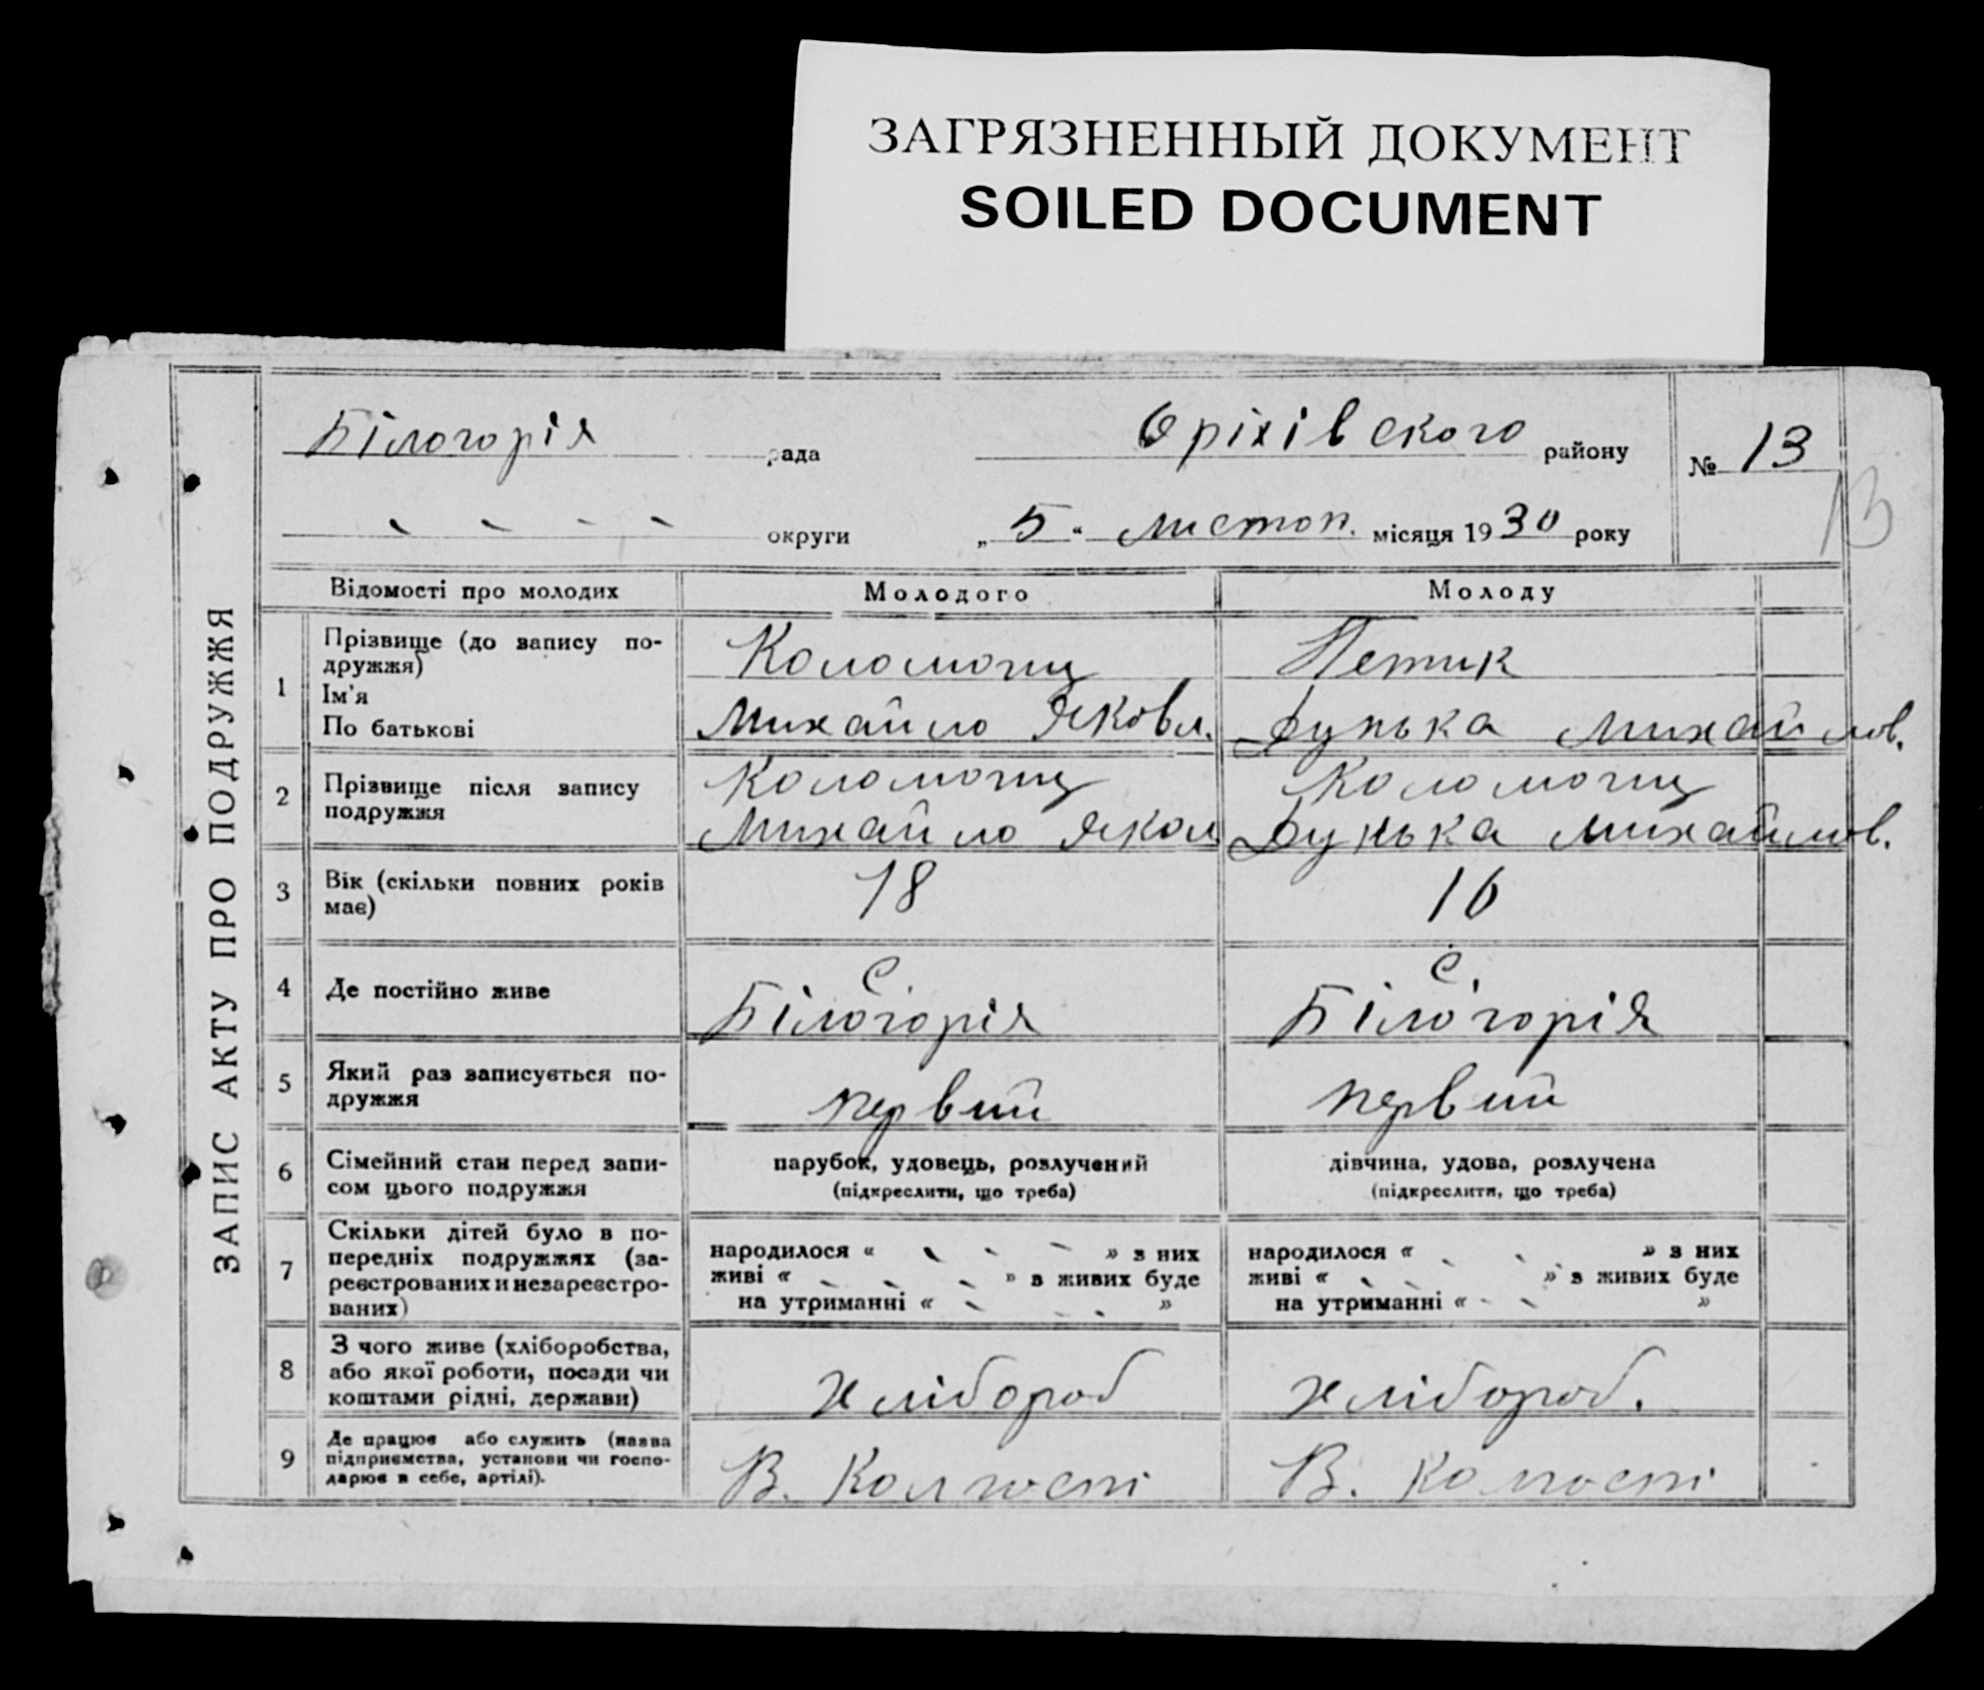 ЗАГРЯЗНЕННЫЙ ДОКУМЕНТ
SOILED DOCUMENT
ЗАПИС АКТУ ПРО ПОДРУЖЖЯ
Білогорія рада Оріхівского району № 13
округи „ 5 “ листоп. місяця 1930 року
13
Відомості про молодих Молодого Молоду
1 Прізвище (до запису по-
дружжя) Коломоєць Петик
Ім'я
По батькові Михайло Яковл. Дунька Михайлов.
2 Прізвище після запису
подружжя Коломоєць Коломоєць
Михайло Якол Дунька Михайлов.
3 Вік (скільки повних років
має) 18 16
4 Де постійно живе с. Білогорія с. Білогорія
5 Який раз записується по-
дружжя первий первий
6 Сімейний стан перед запи-
сом цього подружжя
парубок, удовець, розлучений
(підкреслити, що треба)
дівчина, удова, розлучена
(підкреслити, що треба)
7 Скільки дітей було в по-
передніх подружжях (за-
реєстрованих и незареєстро-
ваних)
народилося « » з них
живі « » з живих буде
на утриманні « »
народилося « » з них
живі « » з живих буде
на утриманні « »
8 З чого живе (хліборобства,
або якої роботи, посади чи
коштами рідні, держави)
хлібороб хлібороб.
9 Де працює або служить (назва
підприємства, установи чи госпо-
дарює в себе, артілі).
В. Колгоспі В. Колгоспі